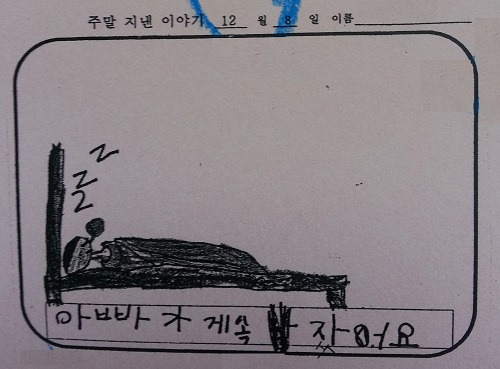 주말 지낸 이야기 12 월 8 일 이름
Z
Z
Z
아빠가 게속 자어요